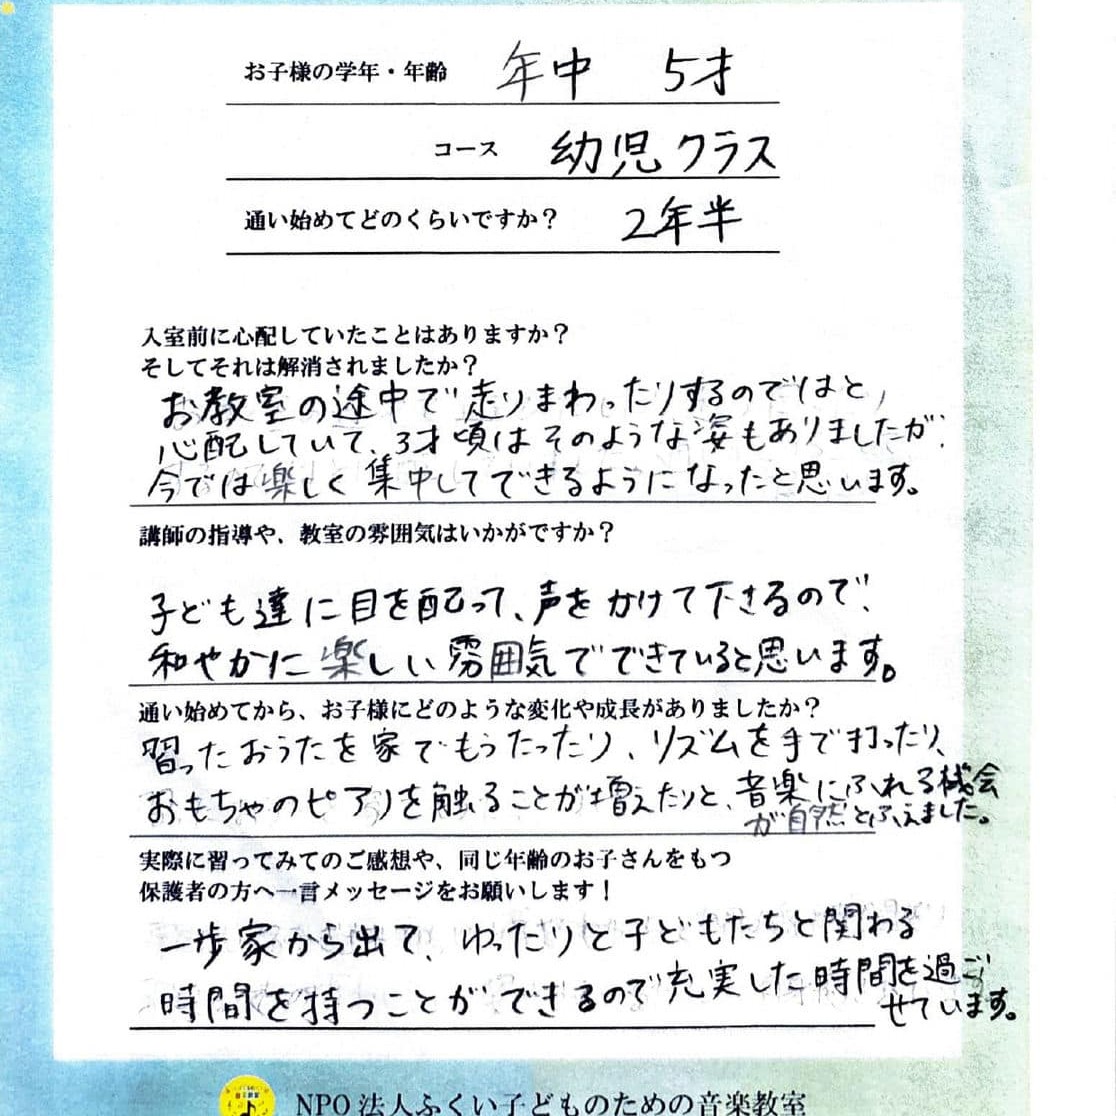 お子様の学年・年齢 年中 5才
コース 幼児クラス
通い始めてどのくらいですか？ 2年半
入室前に心配していたことはありますか？
そしてそれは解消されましたか？
お教室の途中で走りまわったりするのではと、
心配していて、3才頃はそのような姿もありましたが、
今では楽しく集中してできるようになったと思います。
講師の指導や、教室の雰囲気はいかがですか？
子ども達に目を配って、声をかけて下さるので、
和やかに楽しい雰囲気でできていると思います。
通い始めてから、お子様にどのような変化や成長がありましたか？
習ったおうたを家でもうたったり、リズムを手で打ったり、
おもちゃのピアノを触ることが増えたりと、音楽にふれる機会
が自然とふえました。
実際に習ってみてのご感想や、同じ年齢のお子さんをもつ
保護者の方へ一言メッセージをお願いします！
一歩家から出て、ゆったりと子どもたちと関わる
時間を持つことができるので充実した時間を過ご
せています。
NPO法人ふくい子どものための音楽教室